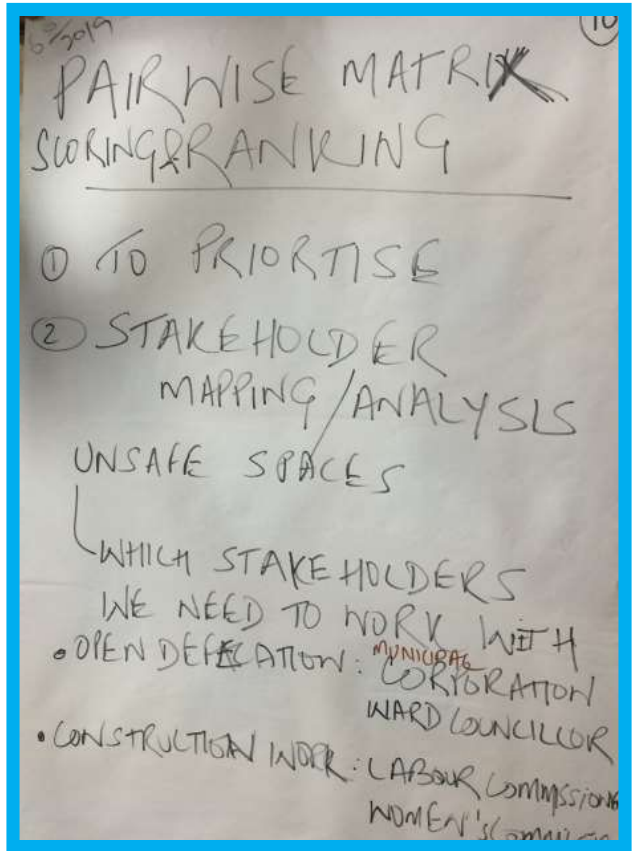 10
PAIRWISE MATRIX
SCORING & RANKING
① TO PRIORTISE
② STAKEHOLDER
MAPPING/ANALYSIS
UNSAFE SPACES
WHICH STAKEHOLDERS
WE NEED TO WORK WITH
• OPEN DEFECATION: MUNICIPAL
CORPORATION
WARD COUNCILLOR
• CONSTRUCTION WORK: LABOUR COMMISSIONE
WOMEN'S